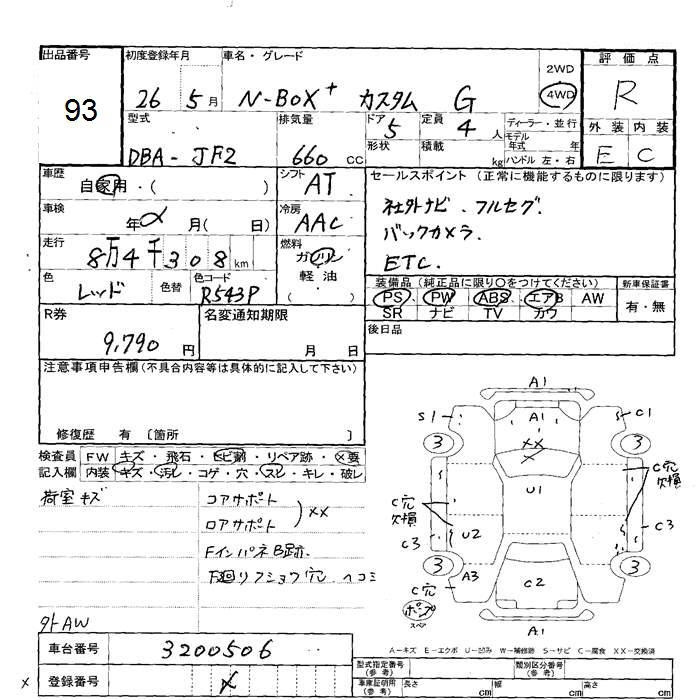 出品番号
93
初度登録年月
26 5月
車名・グレード
N-BOX+ カスタム G
2WD
4WD
評価点
R
外装 内装
E C
型式
DBA-JF2
排気量
660 CC
ドア 5
形状
定員 4 人
積載 kg
ディーラー・並行
モデル年式 年
ハンドル 左・右
車歴
自家用・( )
シフト AT
車検
年 月( 日)
冷房 AAC
走行
8万4千308km
燃料
ガソリン
軽油
( )
色
レッド
色替
色コード
R543P
セールスポイント (正常に機能するものに限ります)
社外ナビ.フルセグ.
バックカメラ.
ETC.
装備品 (純正品に限り○をつけてください)
PS PW ABS エアB AW
SR ナビ TV カワ
新車保証書
有・無
R券
9,790 円
名変通知期限
月 日
後日品
注意事項申告欄(不具合内容等は具体的に記入して下さい)
修復歴 有 〔箇所 〕
検査員
記入欄
FW キズ・飛石・ヒビ割・リペア跡・×要
内装 キズ・汚レ・コゲ・穴・スレ・キレ・破レ
荷室キズ
コアサポート
ロアサポート
××
FインパネB跡.
下廻リフショウ穴.ヘコミ
外AW
A1
S1
A1
C1
××
×
3
3
U1
C穴
欠損
C穴
欠損
C3
U2
C3
3
3
A3
C2
C穴
ポンプ
スペア
A1
A-キズ E-エクボ U-凹み W-補修跡 S-サビ C-腐食 XX-交換済
車台番号
3200506
× 登録番号
×
型式指定番号
(参考)
類別区分番号
(参考)
車庫証明用
(参考)
長さ cm
幅 cm
高さ cm